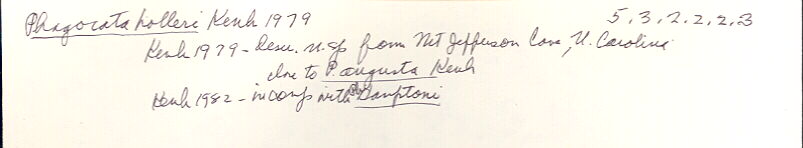 Phagocata holleri Kenk 1979 5, 3, 2, 2, 2, 3
Kenk 1979 - Desc. n. sp from Mt Jefferson Cave, N. Carolina
close to P. angusta Kenk
Kenk 1982 - in comp with Ph. bamptoni